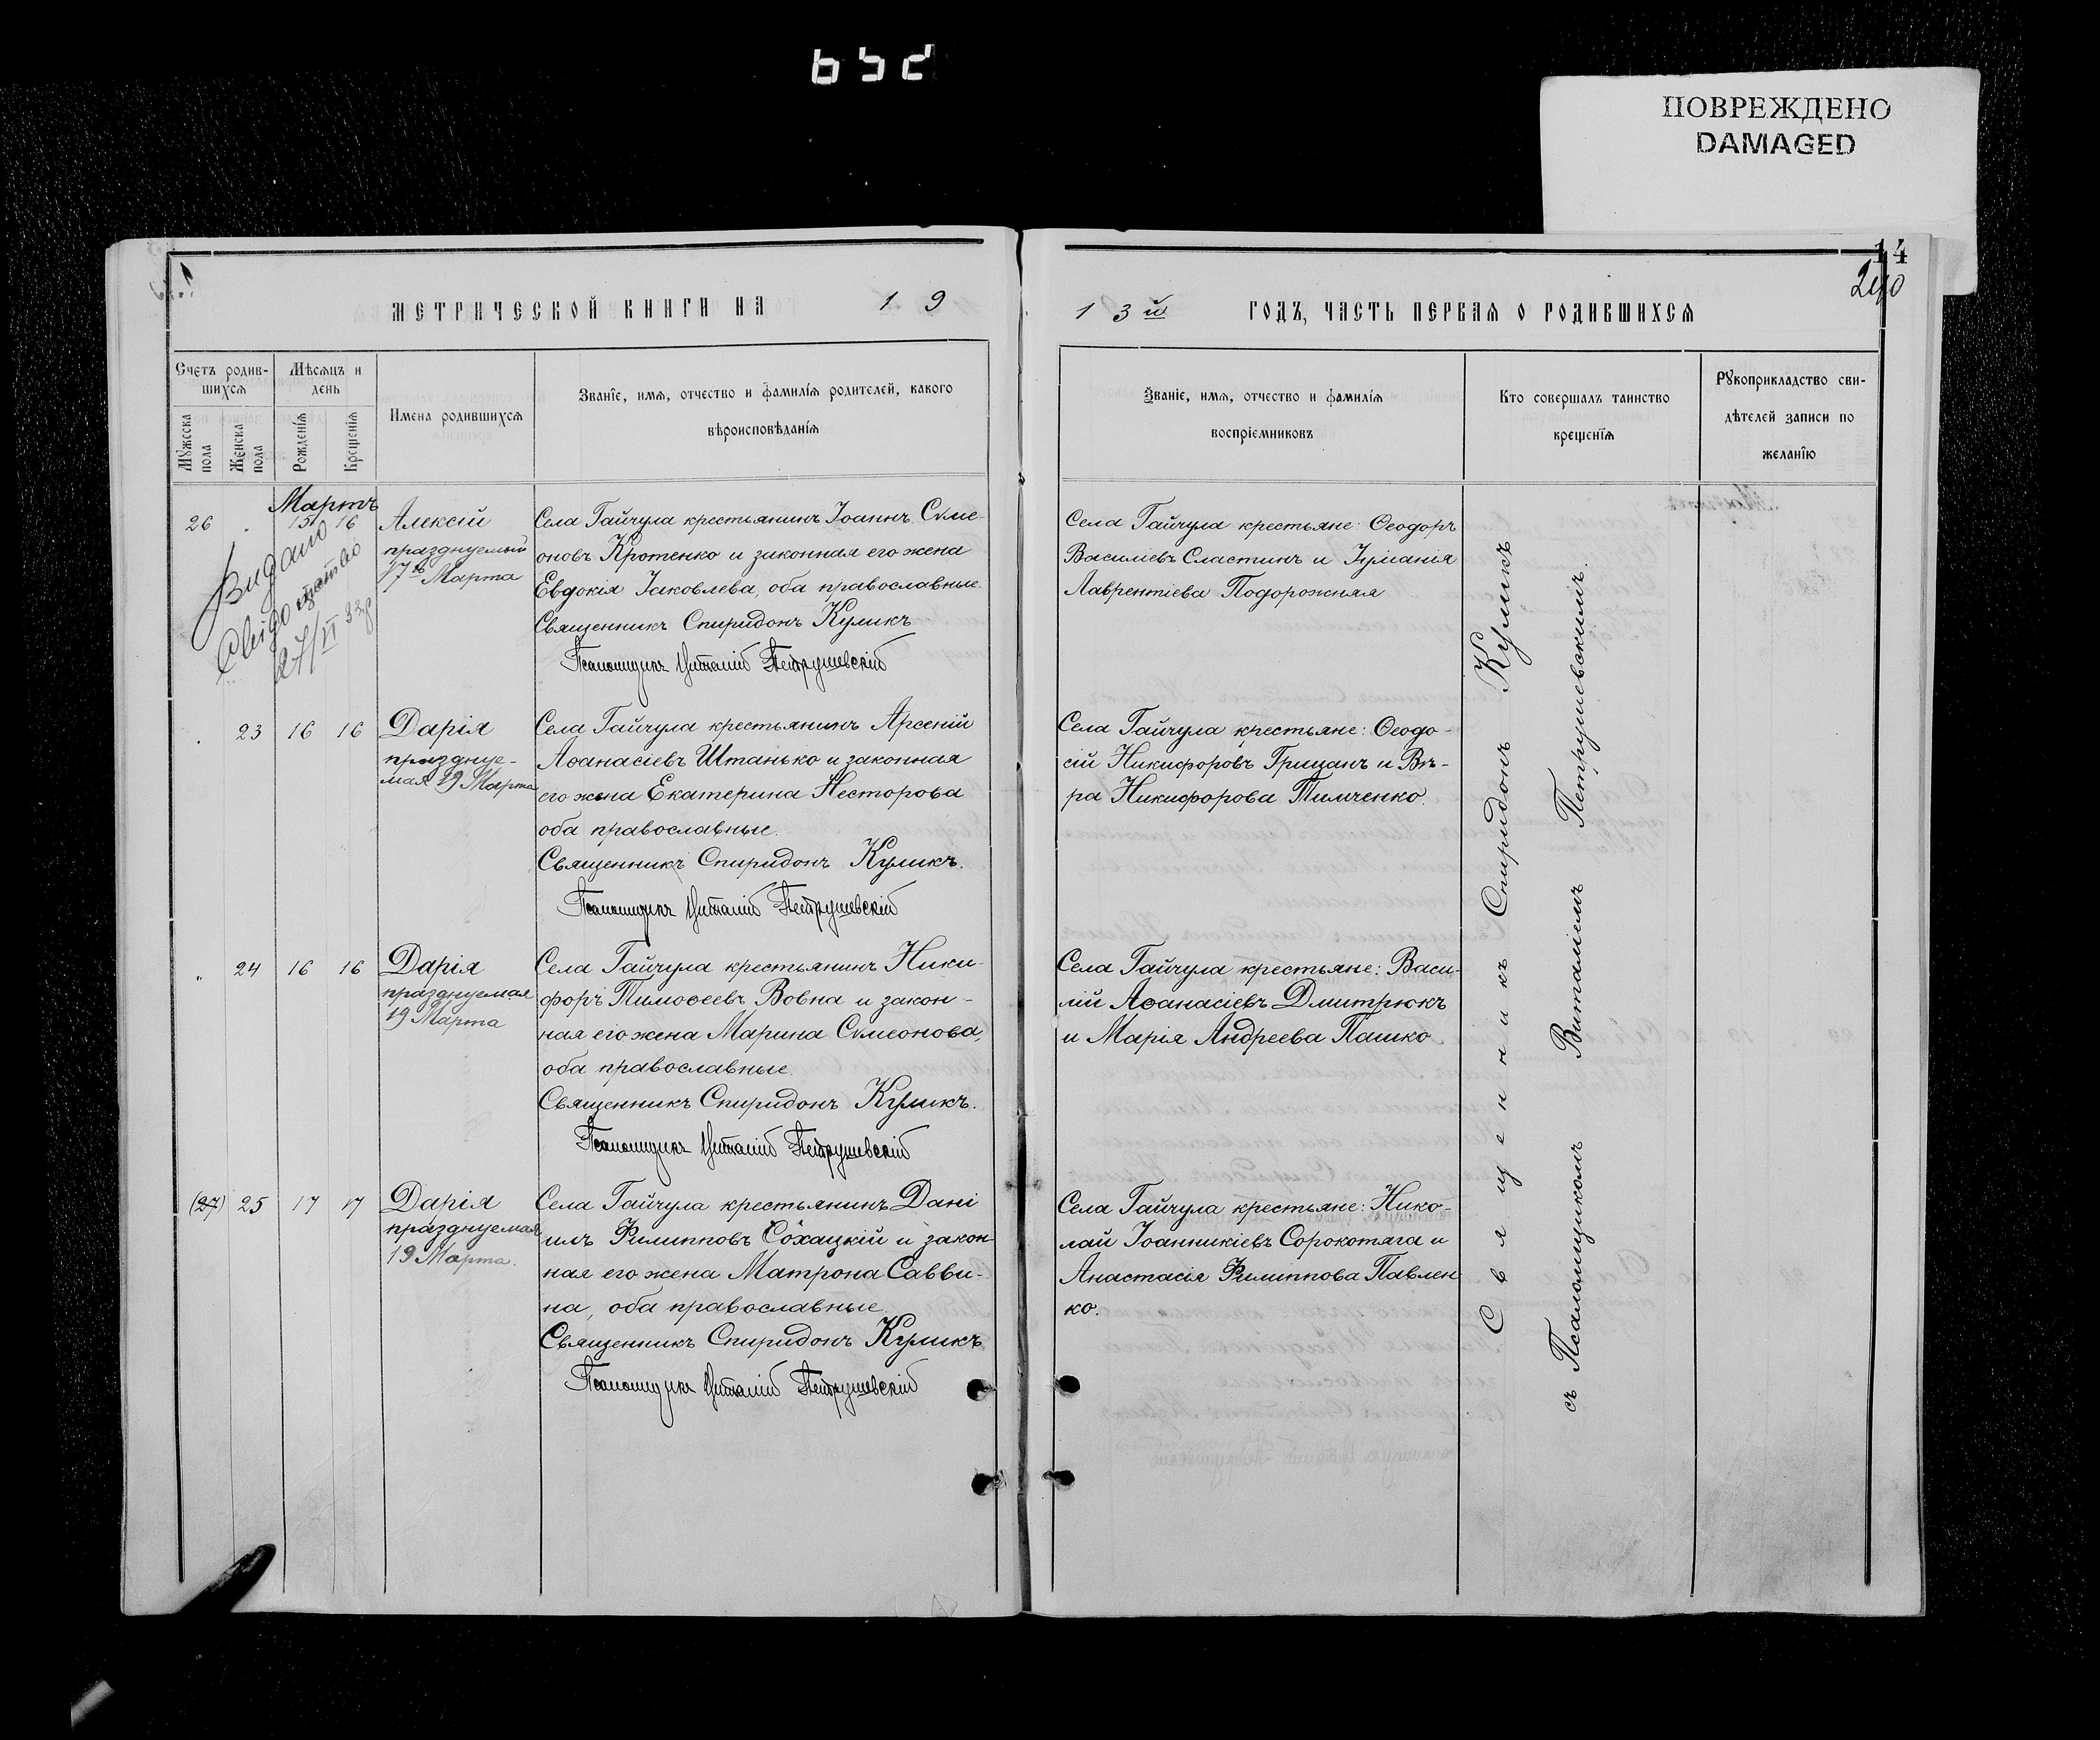 ПОВРЕЖДЕНО
DAMAGED
14
240
МЕТРИЧЕСКОЙ КНИГИ НА 19
13й ГОДЪ, ЧАСТЬ ПЕРВАЯ О РОДИВШИХСЯ
Счетъ родив-
шихся
Мѣсяцъ и
день
Мужеска
пола
Женска
пола
Рожденія
Крещенія
Имена родившихся
Званіе, имя, отчество и фамилія родителей, какого
вѣроисповѣданія
Званіе, имя, отчество и фамилія
воспріемниковъ
Кто совершалъ таинство
крещенія
Рукоприкладство сви-
дѣтелей записи по
желанію
Мартъ
26 15 16
Видано
27/VI 33 р
Алексій
празднуемый
17го Марта
Села Гайчула крестьянинъ Іоаннъ Сѵме-
оновъ Кротенко и законная его жена
Евдокія Іаковлева, оба православные
Священникъ Спиридонъ Куликъ
Псаломщикъ Виталій Петрушевскій
Села Гайчула крестьяне: Ѳеодоръ
Василіевъ Сластинъ и Іуліанія
Лаврентіева Подорожняя
23 16 16
Дарія
празднуе-
мая 19 Марта
Села Гайчула крестьянинъ Арсеній
Аѳанасіевъ Штанько и законная
его жена Екатерина Несторова
оба православные.
Священникъ Спиридонъ Куликъ.
Псаломщикъ Виталій Петрушевскій
Села Гайчула крестьяне: Ѳеодо-
сій Никифоровъ Грицанъ и Вѣ-
ра Никифорова Тимченко.
24 16 16
Дарія
празднуемая
19 Марта
Села Гайчула крестьянинъ Ники-
форъ Тимоѳеевъ Вовна и закон-
ная его жена Марина Сѵмеонова,
оба православные.
Священникъ Спиридонъ Куликъ.
Псаломщикъ Виталій Петрушевскій
Села Гайчула крестьяне: Васи-
лій Аѳанасіевъ Дмитрюкъ
и Марія Андреева Пашко.
(27) 25 17 17
Дарія
празднуемая
19 Марта.
Села Гайчула крестьянинъ Дані
илъ Филипповъ Сохацкій и закон-
ная его жена Матрона Савви-
на, оба православные.
Священникъ Спиридонъ Куликъ
Псаломщикъ Виталій Петрушевскій
Села Гайчула крестьяне: Нико-
лай Іоанникіевъ Сорокотяга и
Анастасія Филиппова Павлен
ко.
Священникъ Спиридонъ Куликъ
съ Псаломщикомъ Виталіемъ Петрушевскимъ.